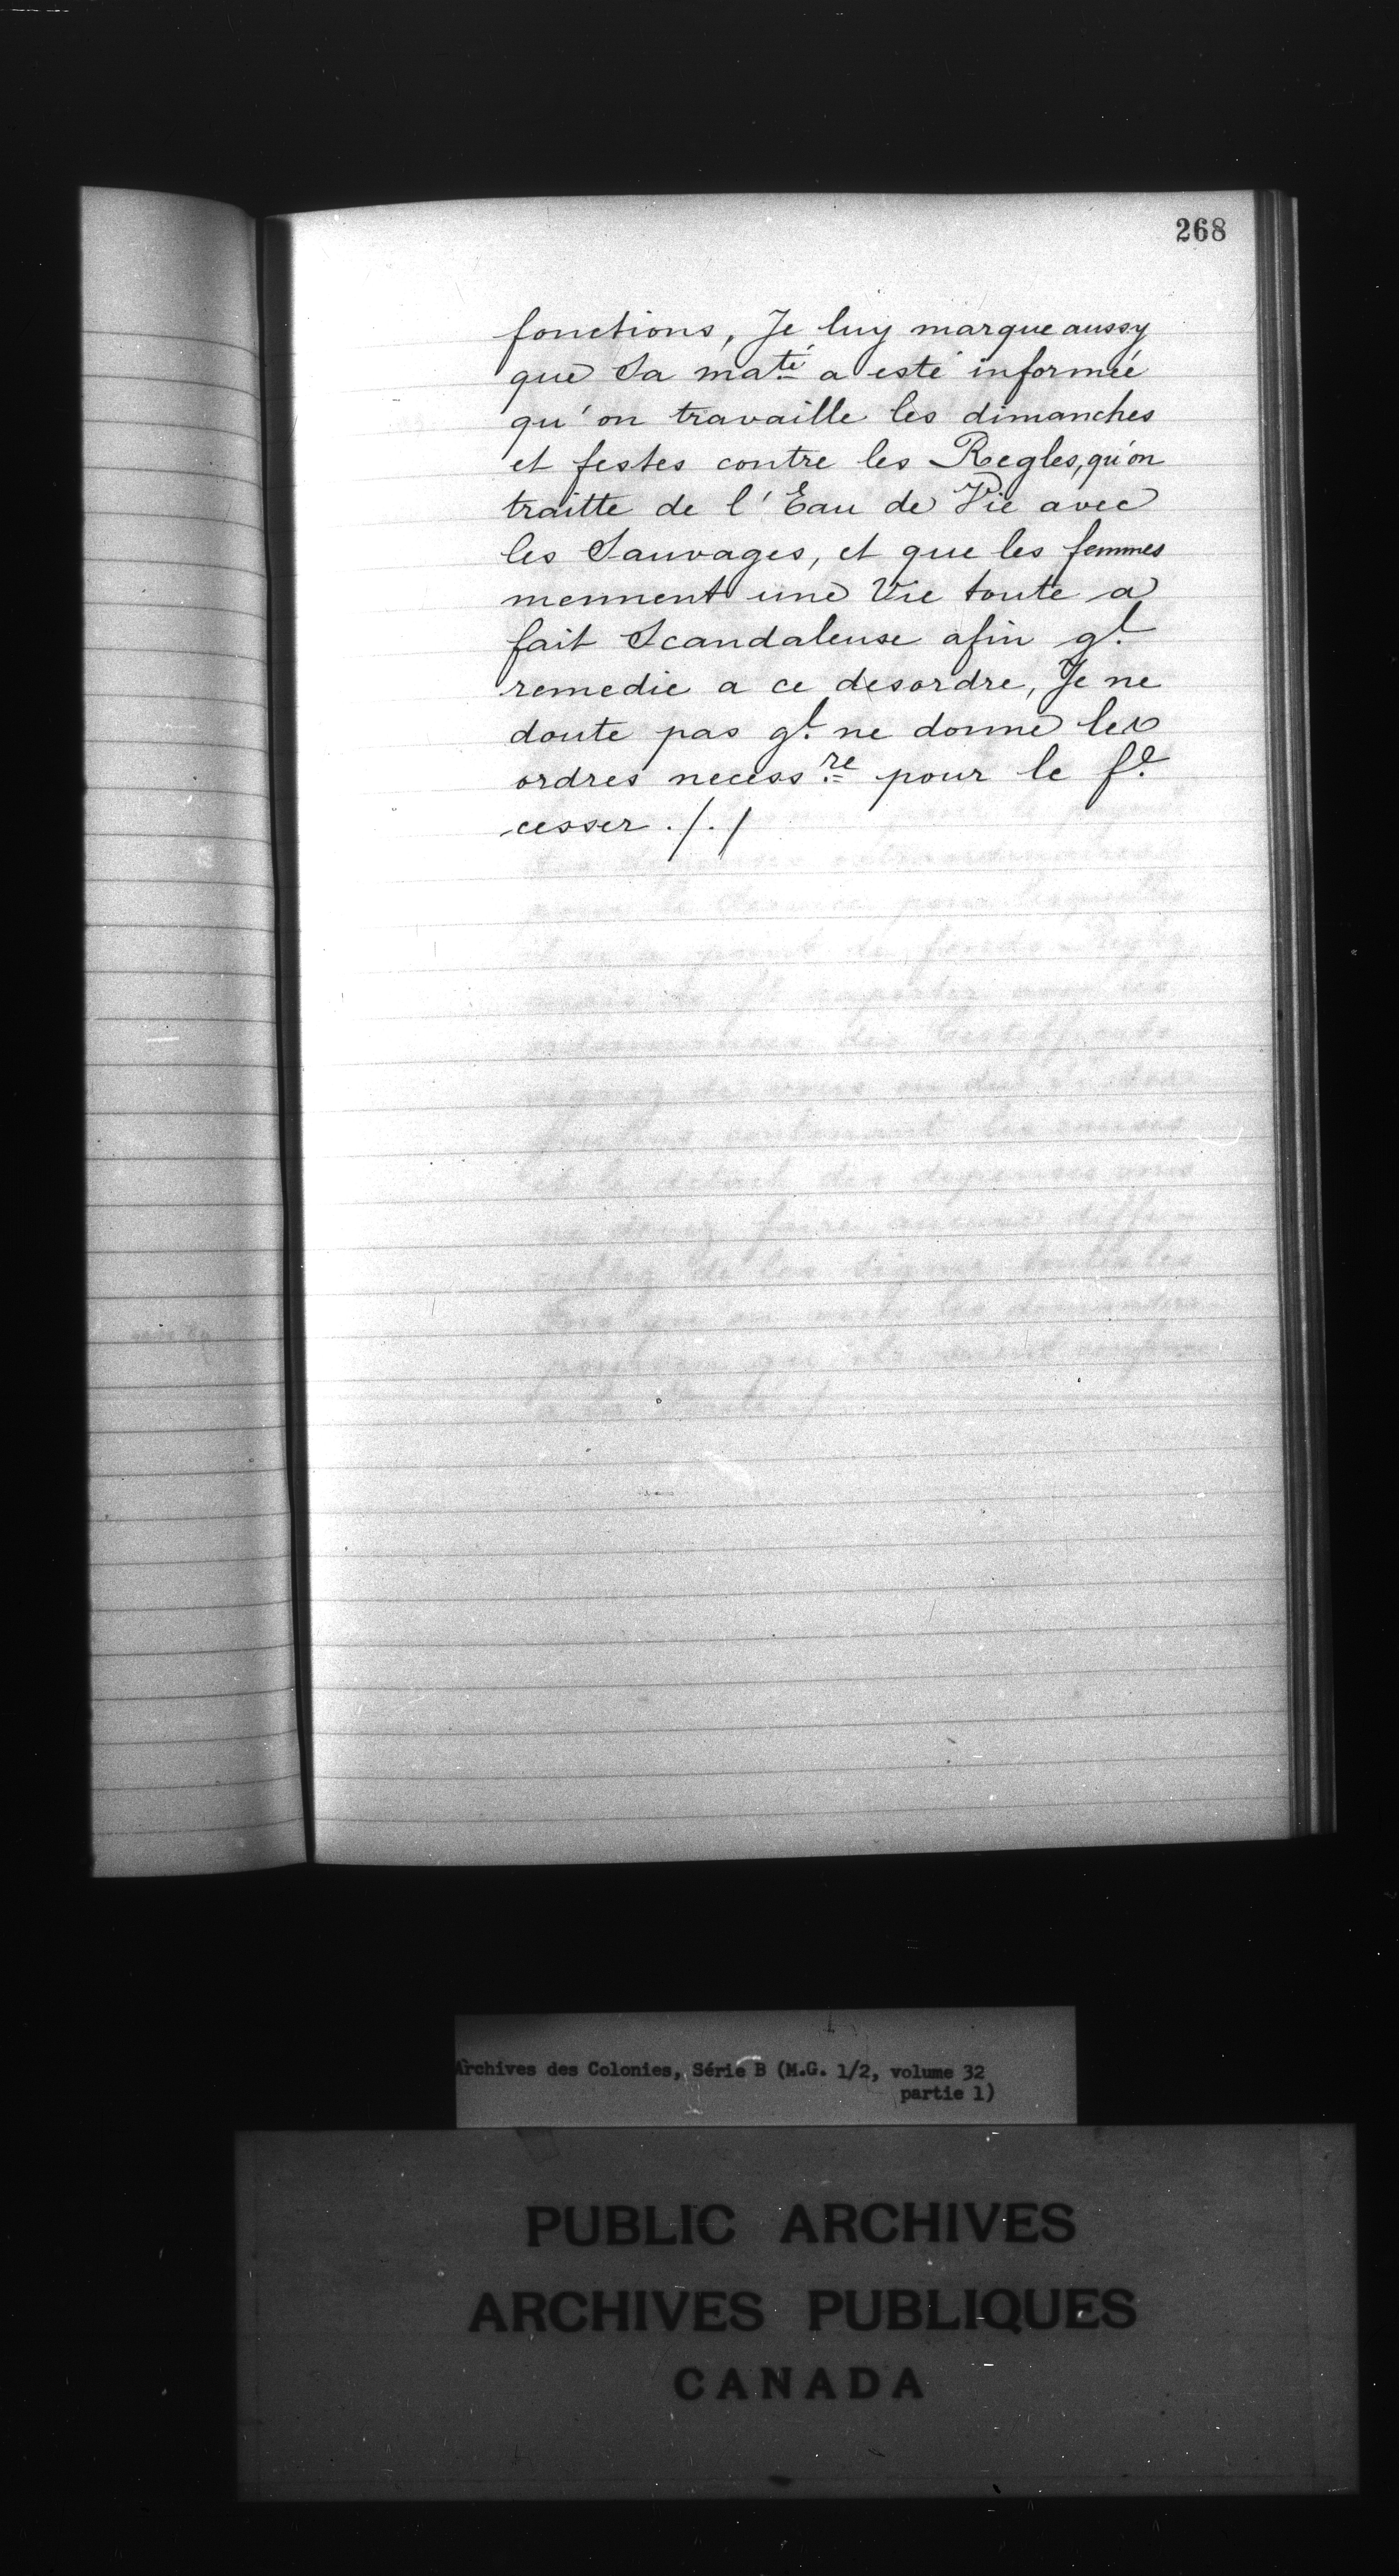 268
fonctions, Je luy marque aussy
que Sa ma.té a esté informée
qu'on travaille les dimanches
et festes contre les Regles, qu'on
traitte de l'Eau de Vie avec
les Sauvages, et que les femmes
mennent une Vie toute a
fait Scandaleuse afin ql.
remedie a ce desordre, Je ne
doute pas ql. ne donne les
ordres necess.re pour le fe.
cesser ./. /
Archives des Colonies, Série B (M.G. 1/2, volume 32
partie 1)
PUBLIC ARCHIVES
ARCHIVES PUBLIQUES
CANADA